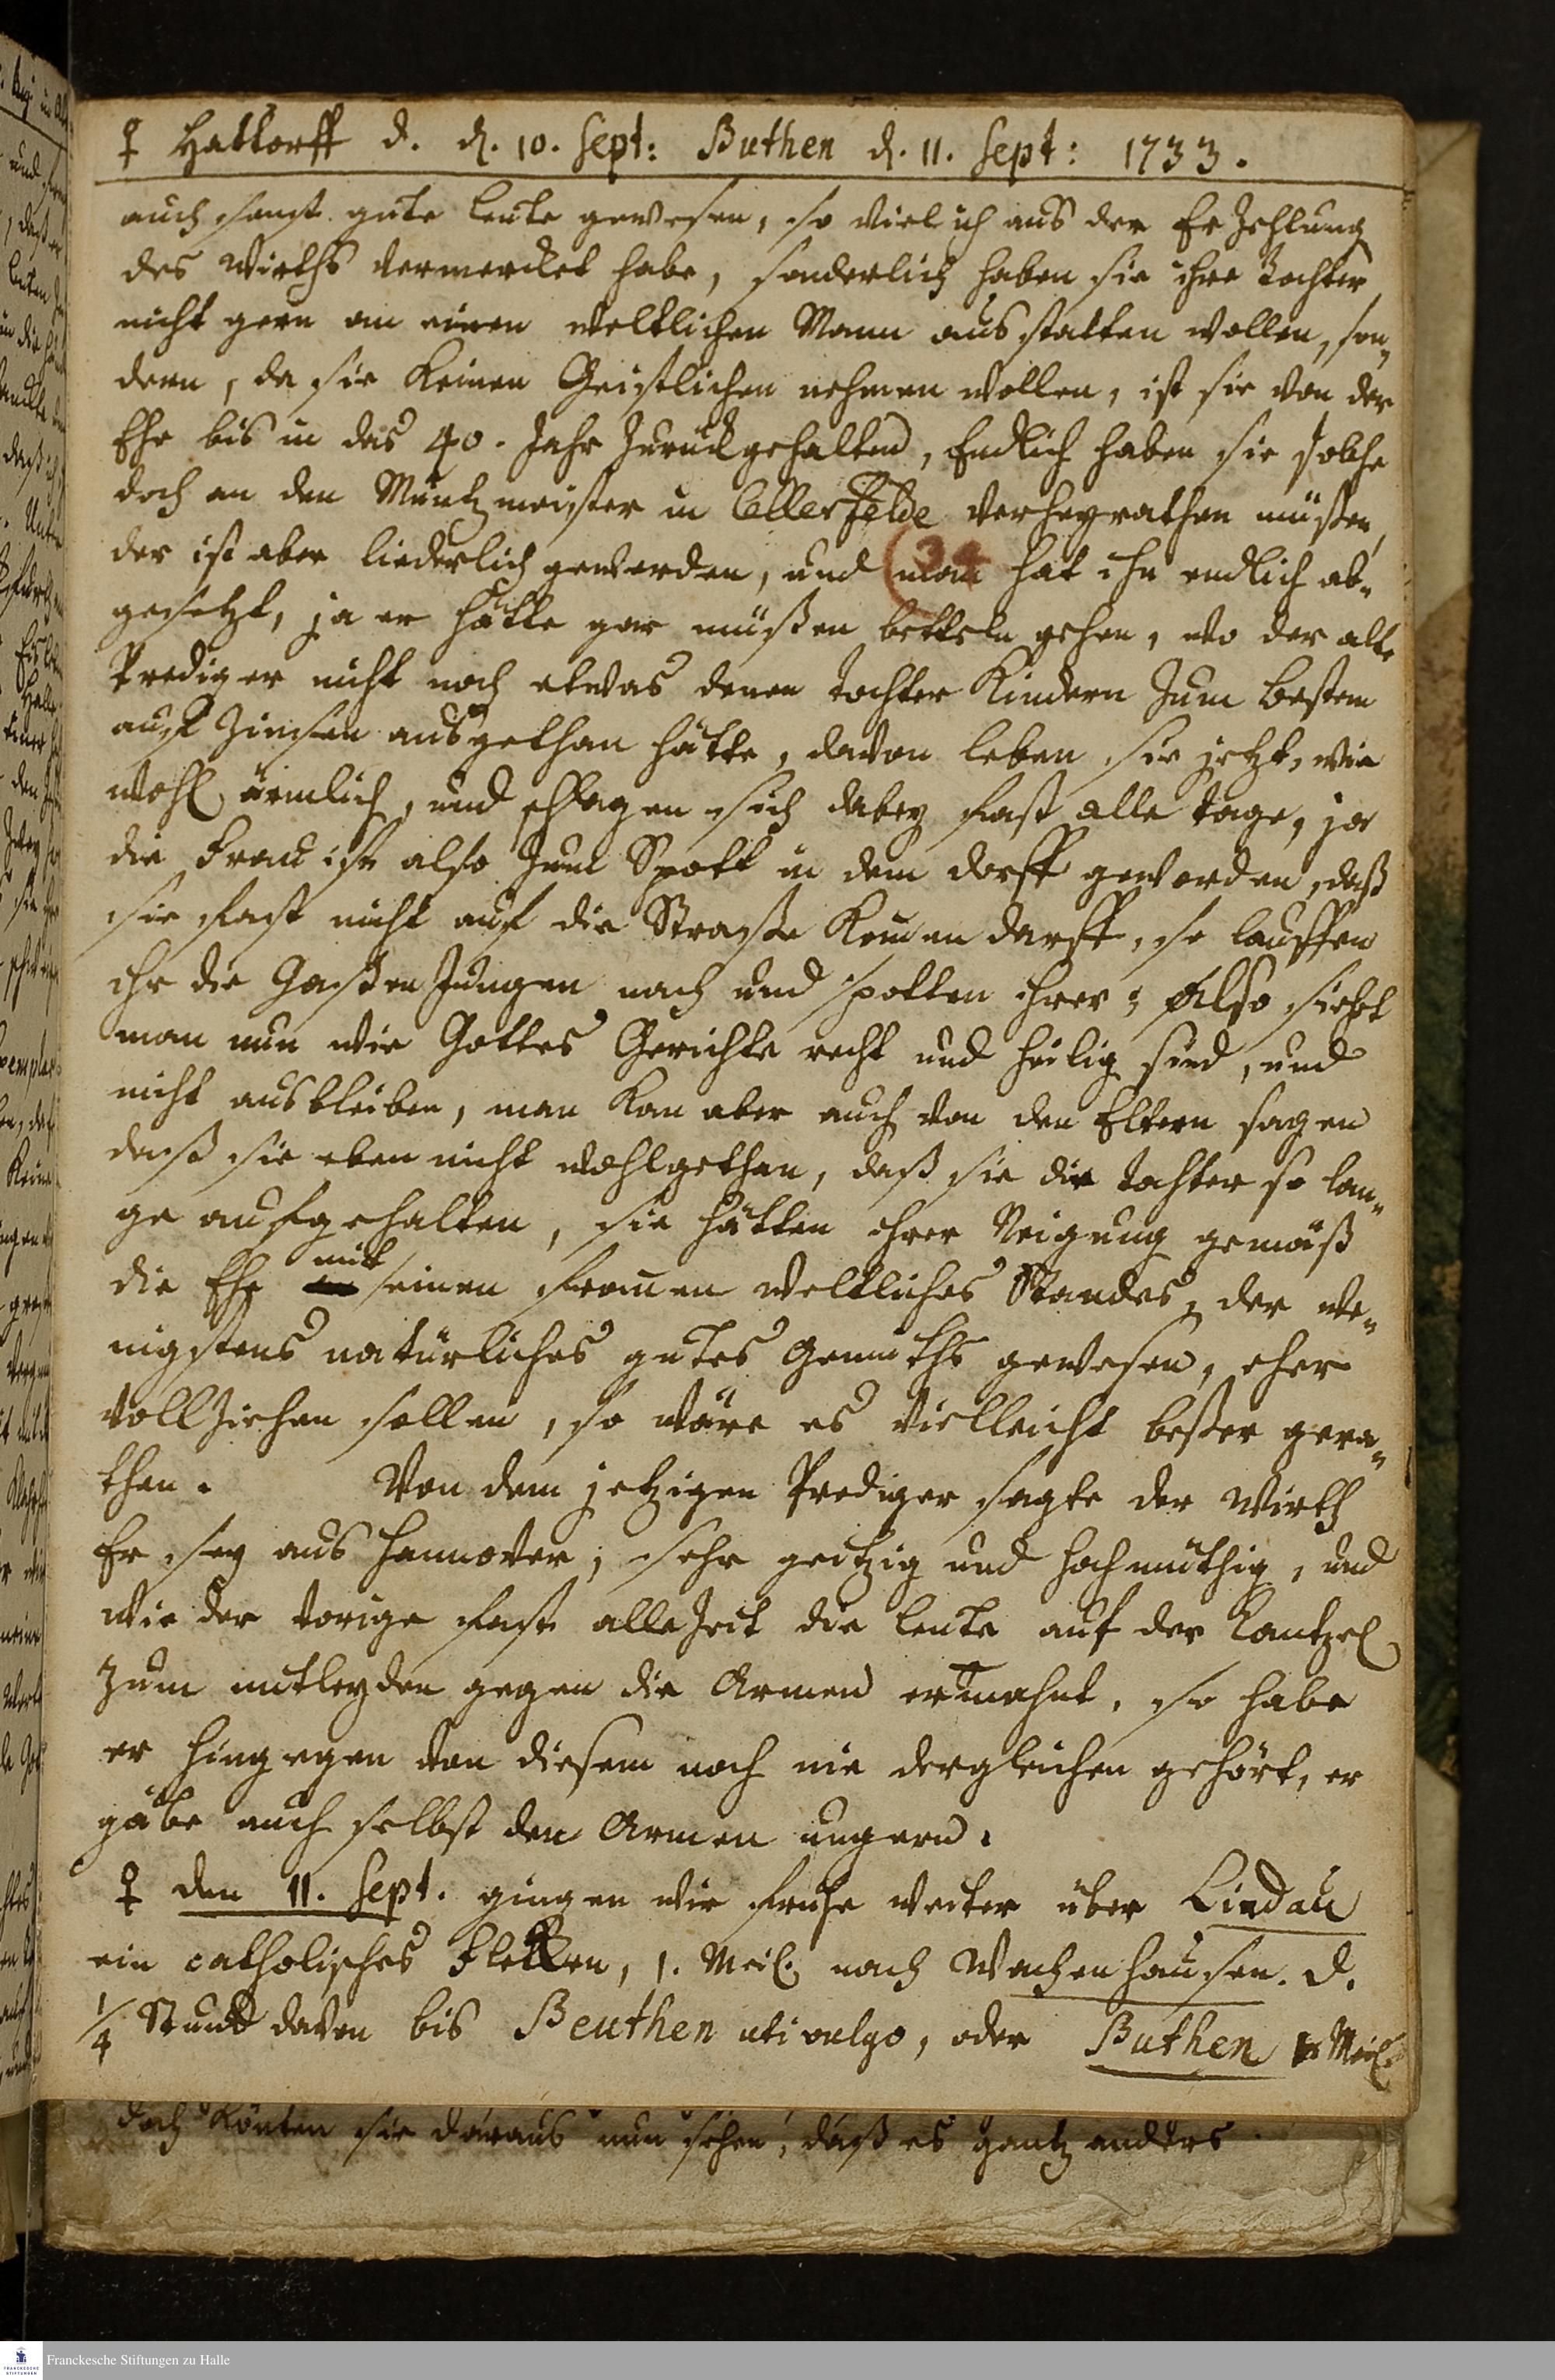 ♀ Hattorff d. d. 10. Sept: Buthen d. 11. Sept: 1733.
auch sonst gute Leute gewesen, so viel ich aus der Erzehlung
des Wirths vermercket habe, sonderlich haben sie ihre Tochter
nicht gern an einen weltlichen Mann ausstatten wollen, son„
dern, da sie keinen Geistlichen nehmen wollen, ist sie von der
Ehe bis in das 40. Jahr zurückgehalten, Endlich haben sie solche
doch an den Müntzmeister in Cellerfelde verheyrathen müßen,
der ist aber liederlich geworden, und man hat ihn endlich ab„
gesetzt, ja er hätte gar müßen betteln gehen, wo der alte
Prediger nicht noch etwas denen Tochter Kindern zum Besten
auf Zinsen ausgethan hätte, davon leben sie jetzt, wie
wohl ärmlich, und schlagen sich dabey fast alle Tage, ja
die Frau ist also zum Spott in dem Dorff geworden, daß
sie fast nicht auf die Straße komen darff, so lauffen
ihr die Gaßen Jungen nach und spotten ihrer; Also siehet
man nun wie Gottes Gerichte recht und heilig sind, und
nicht ausbleiben, man kan aber auch von den Eltern sagen
daß sie eben nicht wohlgethan, daß sie die Tochter so lan„
ge aufgehalten, sie hätten ihrer Neigung gemäß
die Ehe mit einen fromen weltliches Standes, der we„
nigstens natürliches gutes Gemüths gewesen, eher
vollziehen sollen, so wäre es vielleicht beßer gera„
then. Von dem jetzigen Prediger sagte der Wirth
Er sey aus Hannover, sehr geitzig und hochmüthig, und
wie der vorige fast allezeit die Leute auf der Cantzel
zum mitleyden gegen die Armen ermahnt, so habe
er hingegen von diesem noch nie dergleichen gehört, er
gäbe auch selbst den Armen ungern.
♀ den 11. Sept. gingen wir frühe weiter über Lindau
ein catholisches Flecken, 1. Meil. nach Wachenhausen. d.
1/4 Stund davon bis Beuthen uti vulgo, oder Buthen Meil.
doch könten sie daraus nun sehen, daß es gantz anders
34
Franckesche Stiftungen zu Halle